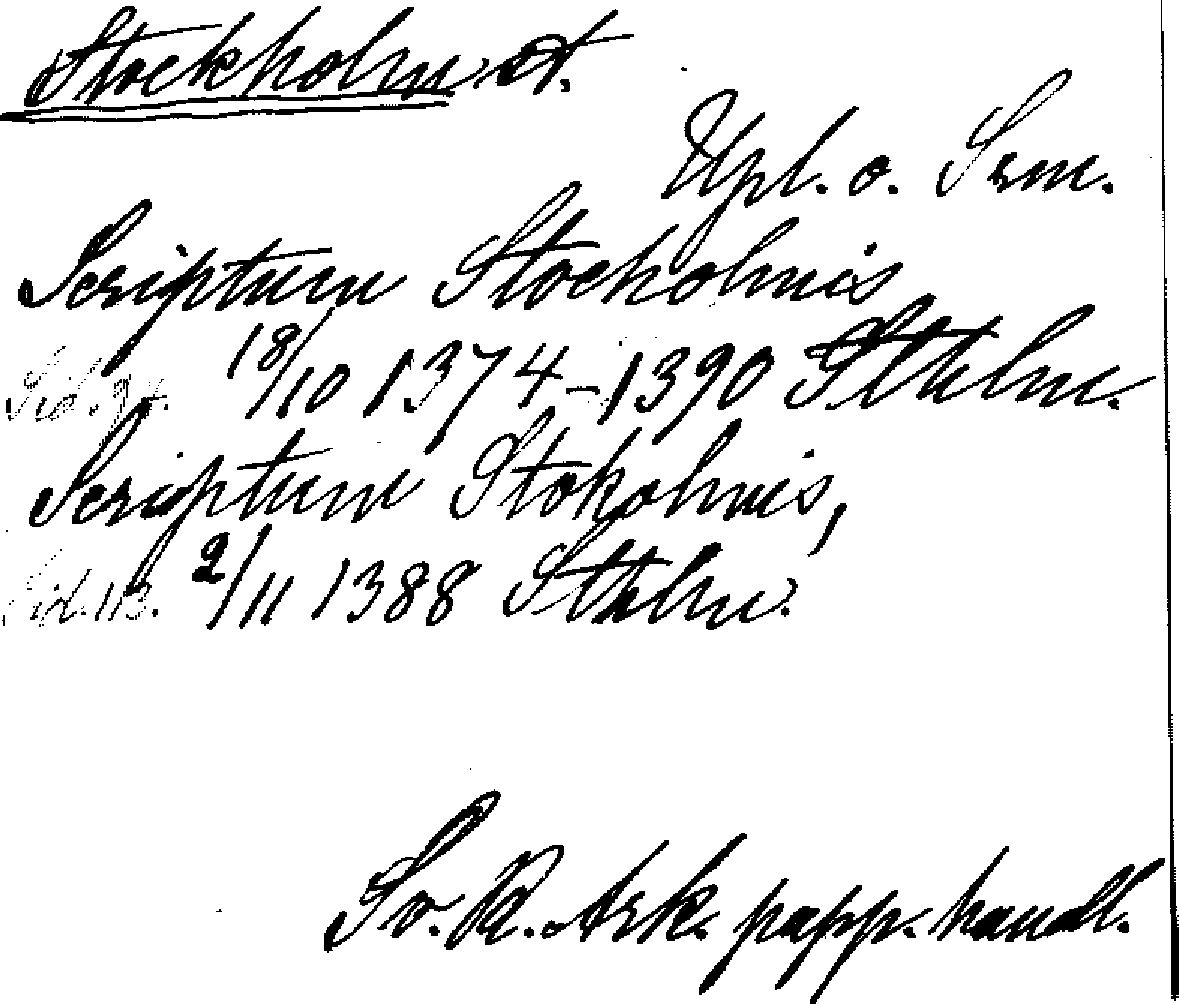 Stockholm st.
Upl. o. Srm.
Scriptum Stocholmis
Sid. 94. 18/10 1374–1390 Sthlm.
Scriptum Stokolmis,
Sid. 113. 2/11 1388 Sthlm.
Sv. R. Ark. papp. handl.